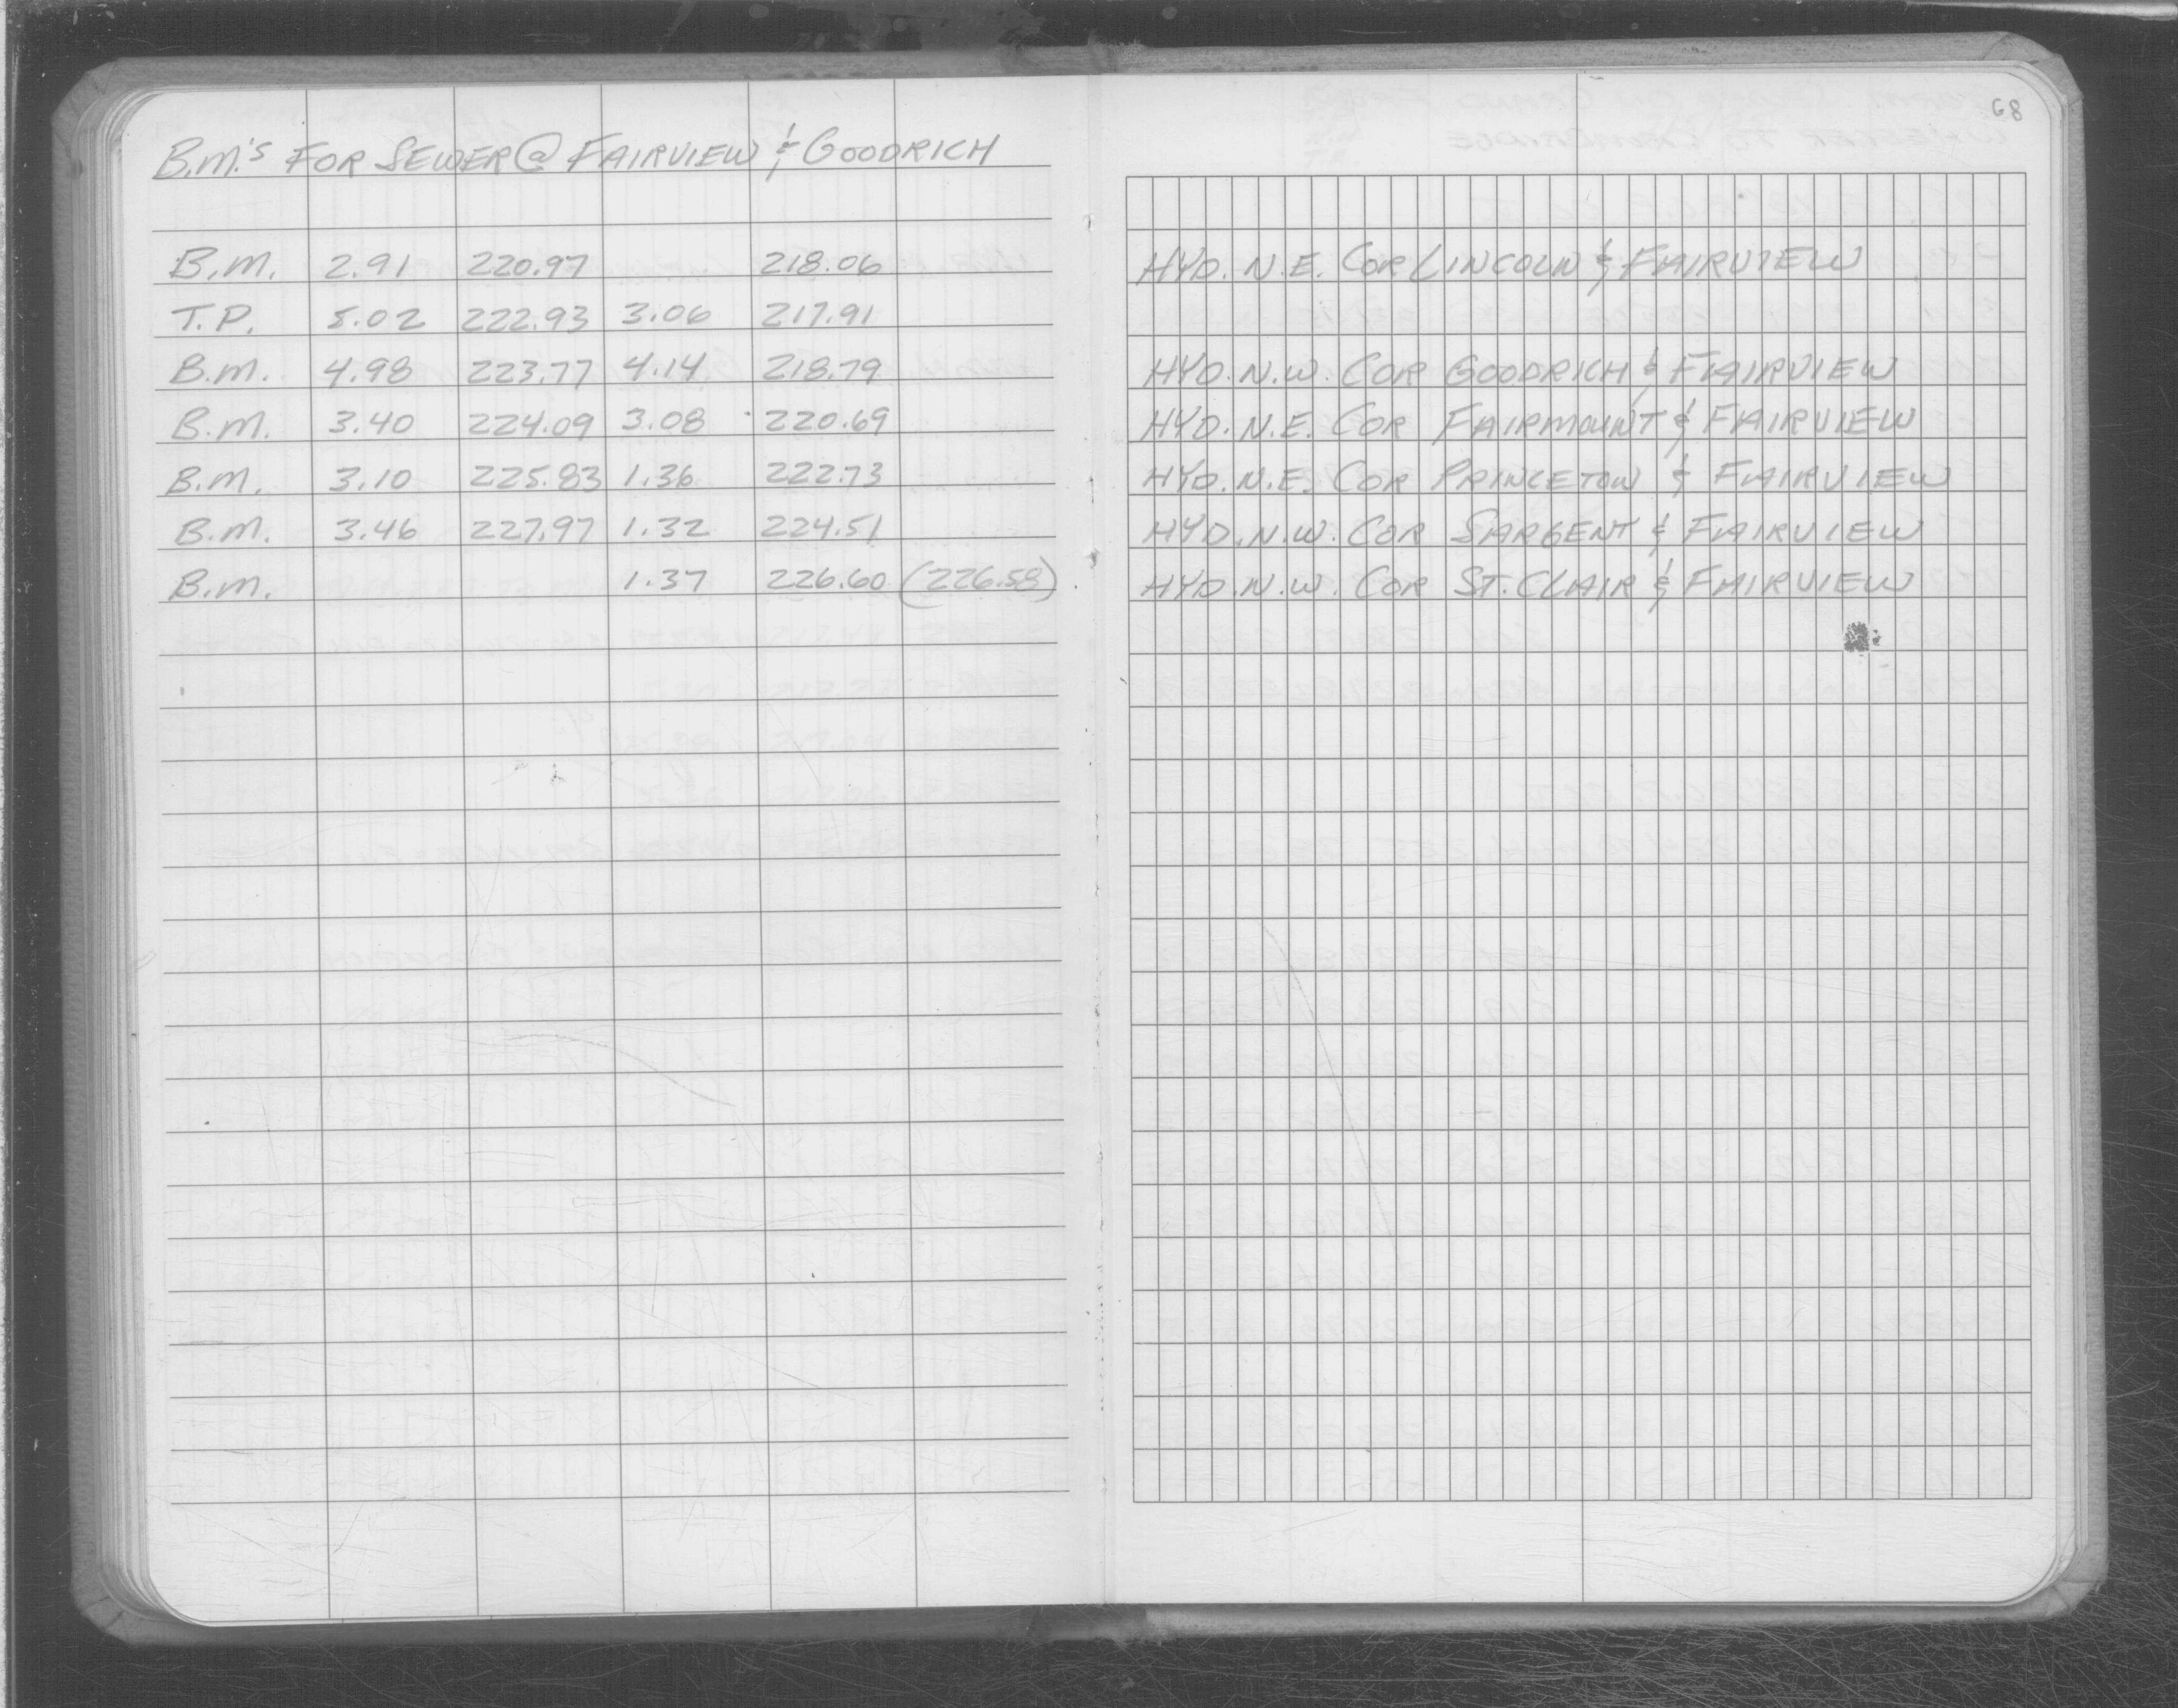 68
B.M.'S FOR SEWER @ FAIRVIEW & GOODRICH
B.M. 2.91 220.97 218.06 HYD. N.E. COR LINCOLN & FAIRVIEW
T.P. 5.02 222.93 3.06 217.91
B.M. 4.98 223.77 4.14 218.79 HYD. N.W. COR GOODRICH & FAIRVIEW
B.M. 3.40 224.09 3.08 220.69 HYD. N.E. COR FAIRMOUNT & FAIRVIEW
B.M. 3.10 225.83 1.36 222.73 HYD. N.E. COR PRINCETON & FAIRVIEW
B.M. 3.46 227.97 1.32 224.51 HYD. N.W. COR SARGENT & FAIRVIEW
B.M. 1.37 226.60 (226.58) HYD. N.W. COR ST. CLAIR & FAIRVIEW